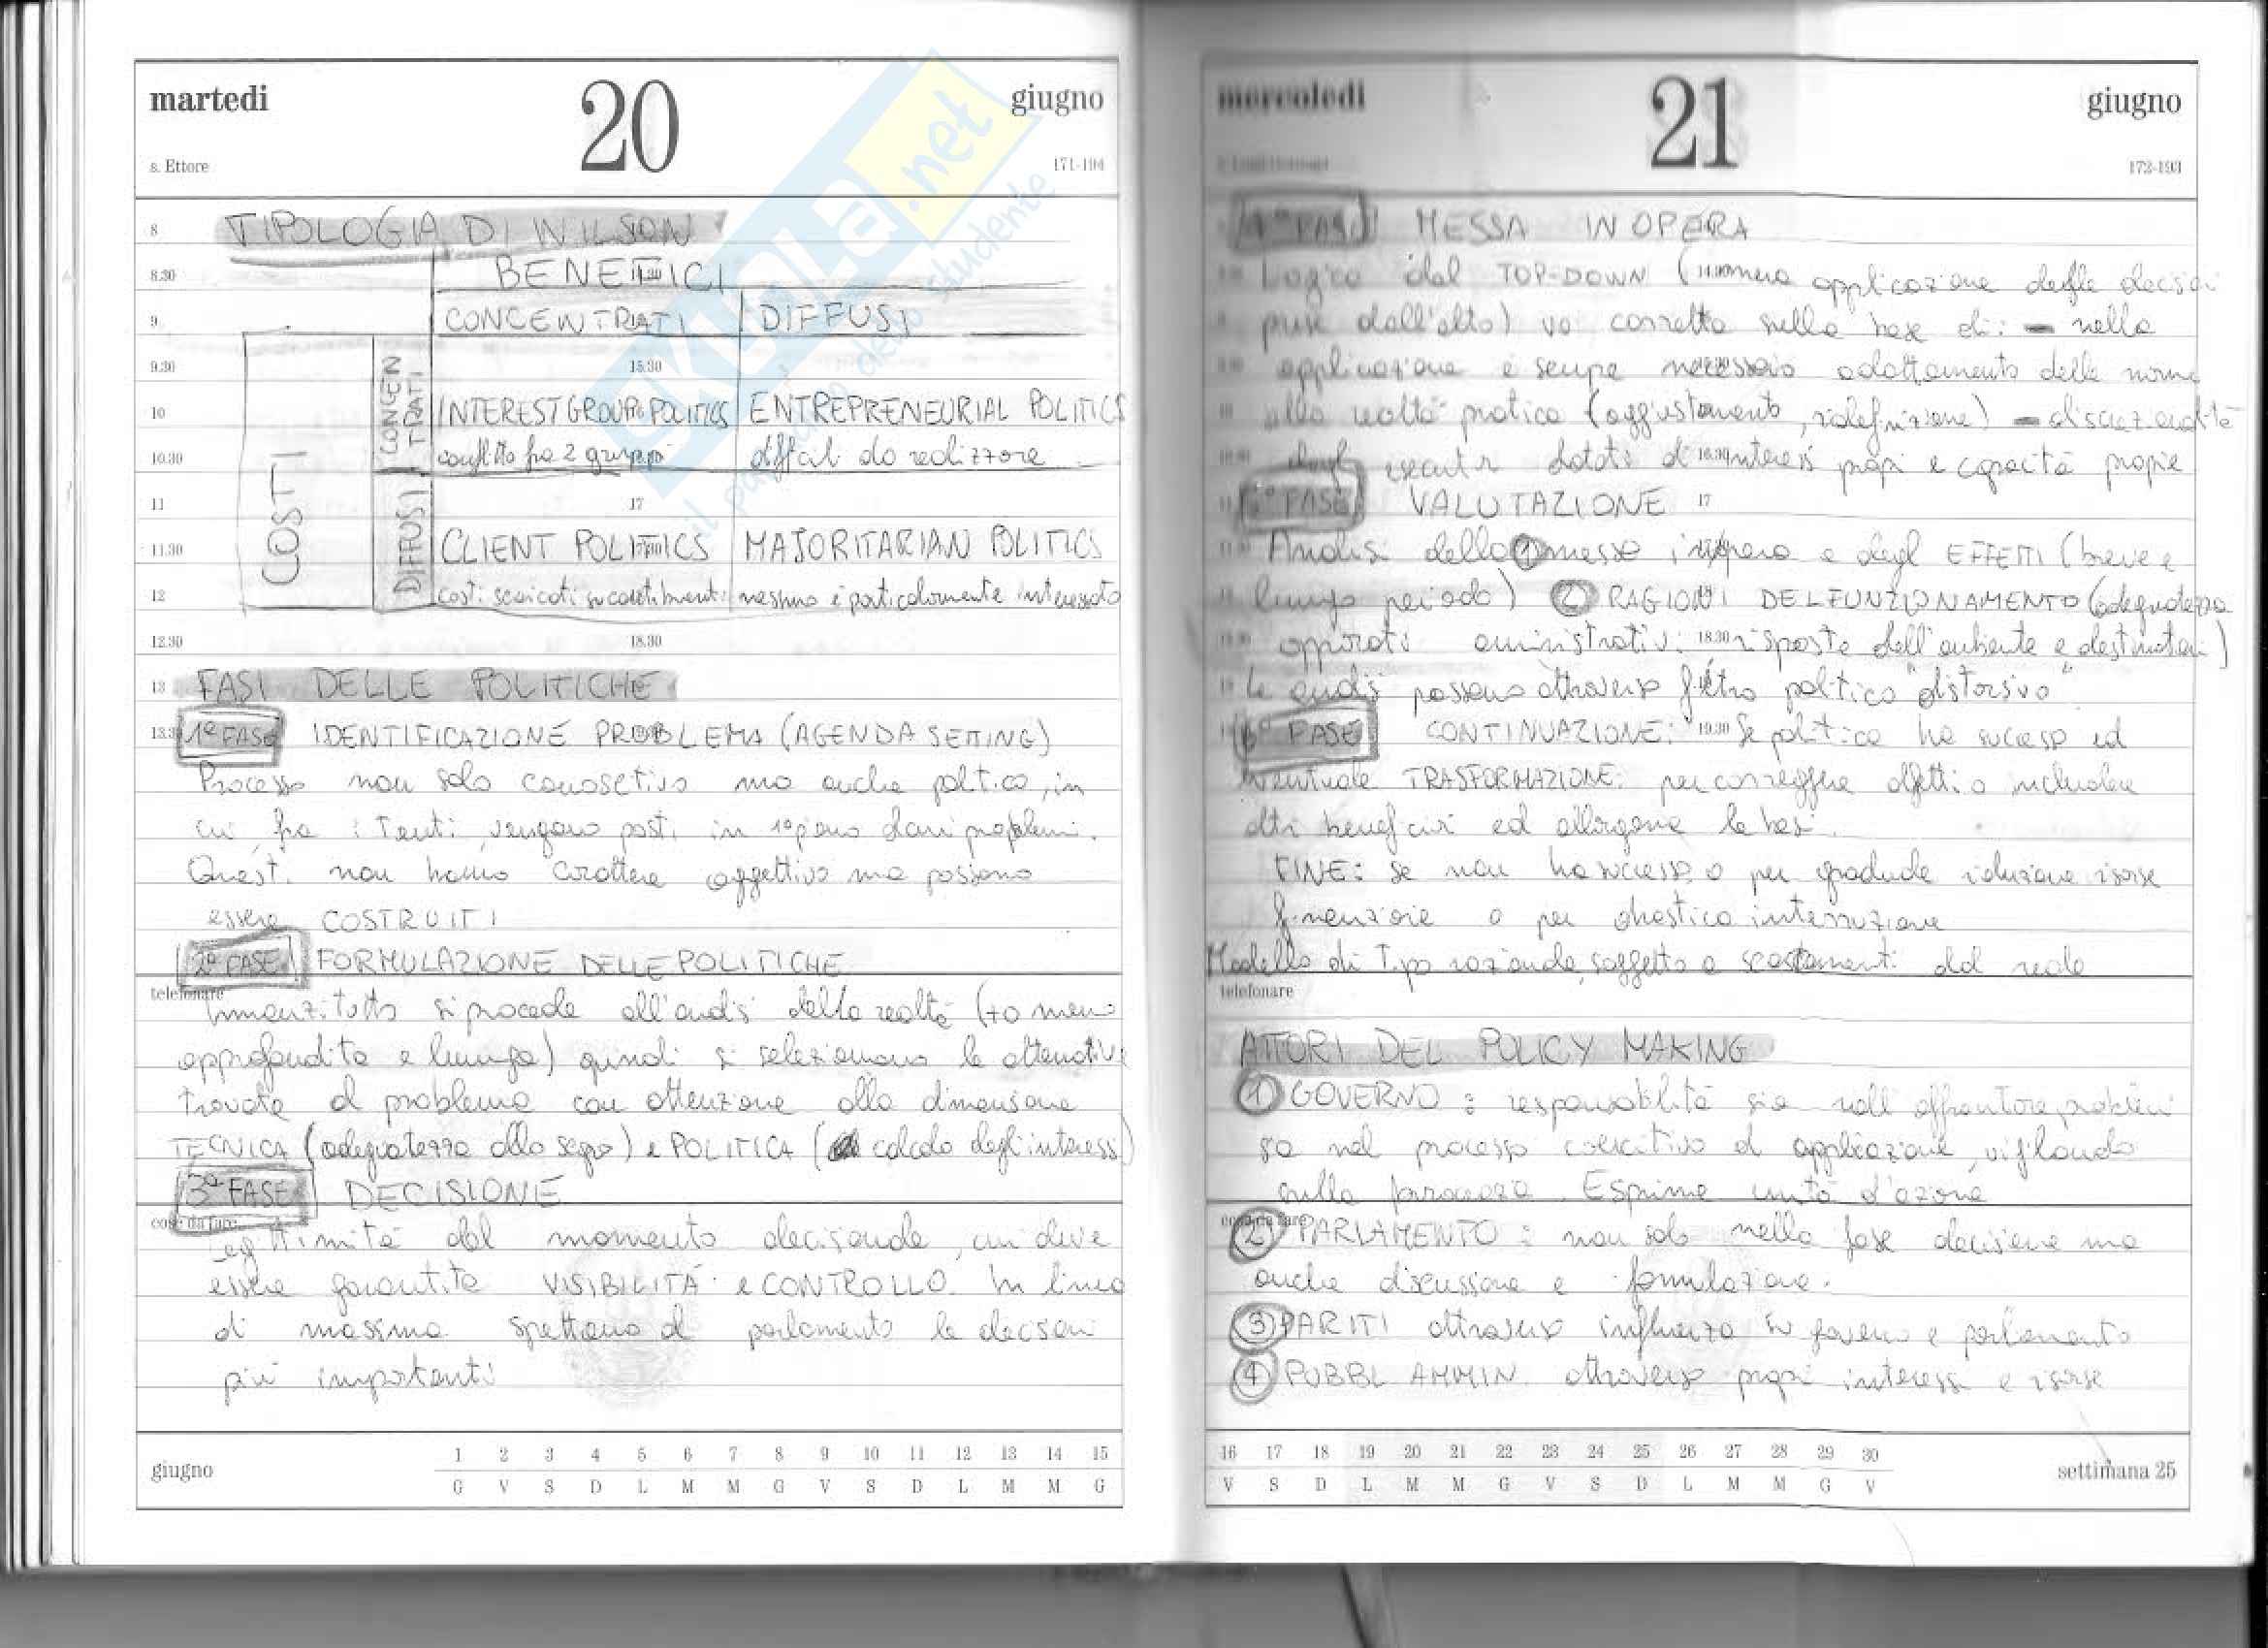 martedi 20 giugno
s. Ettore 171-194
8 TIPOLOGIA DI WILSON
8.30 BENEFICI
9 CONCENTRATI DIFFUSI
COSTI
CONCEN
TRATI
9.30 15.30
10 INTEREST GROUPS POLITICS ENTREPRENEURIAL POLITICS
10.30 conflitto fra 2 gruppi difficil da realizzare
11 17
DIFFUSI
11.30 CLIENT POLITICS MAJORITARIAN POLITICS
12 costi scaricati su contribuenti nessuno è particolarmente interessato
12.30 18.30
13 FASI DELLE POLITICHE
13.30 1ª FASE IDENTIFICAZIONE PROBLEMA (AGENDA SETTING)
Processo non solo conoscetivo ma anche politico, in
cui fra i tanti vengono posti in 1º piano alcuni problemi.
Questi non hanno carattere oggettivo ma possono
essere COSTRUITI
2ª FASE FORMULAZIONE DELLE POLITICHE
telefonare
Innanzitutto si procede all'analisi della realtà (+ o meno
approfondita e lunga) quindi si selezionano le alternative
trovate al problema con attenzione alla dimensione
TECNICA (adeguatezza allo scopo) e POLITICA (calcolo degli interessi)
3ª FASE DECISIONE
cose da fare
Legittimità del momento decisionale, cui deve
essere garantita VISIBILITÀ e CONTROLLO. In linea
di massima spettano al parlamento le decisioni
più importanti
giugno 1 2 3 4 5 6 7 8 9 10 11 12 13 14 15
G V S D L M M G V S D L M M G
mercoledi 21 giugno
172-193
4ª FASE MESSA IN OPERA
Logica del TOP-DOWN (mera applicazione delle decisioni
prese dall'alto) va corretta sulla base di: - nella
applicazione è sempre necessario adattamento delle norme
alla realtà pratica (aggiustamento, ridefinizione) - discrezionalità
degli esecutori dotati di interessi propri e capacità proprie
5ª FASE VALUTAZIONE 17
Analisi della ① messa in opera e degli EFFETTI (breve e
lungo periodo) ② RAGIONI DEL FUNZIONAMENTO (adeguatezza
apparati amministrativi 18.30 risposte dell'ambiente e destinatari)
Le analisi passano attraverso filtro politico "distorsivo"
6ª FASE CONTINUAZIONE: 19.30 Se politica ha successo ed
eventuale TRASFORMAZIONE: per correggere difetti o includere
altri beneficiari ed allargarne le basi.
FINE: se non ha successo o per graduale riduzione risorse
finanziarie o per drastica interruzione
Modello di tipo razionale, soggetto a scostamenti dal reale
telefonare
ATTORI DEL POLICY MAKING
① GOVERNO: responsabilità sia nell'affrontare problemi
sia nel processo coercitivo di applicazione, vigilando
sulla Esprime unità d'azione
cose da fare
② PARLAMENTO: non solo nella fase decisione ma
anche discussione e formulazione.
③ PARTITI attraverso influenza su governo e parlamento
④ PUBBL AMMIN. attraverso propri interessi e risorse
16 17 18 19 20 21 22 23 24 25 26 27 28 29 30
V S D L M M G V S D L M M G V
settimana 25
SKUOLA.net
il paradiso dello studente